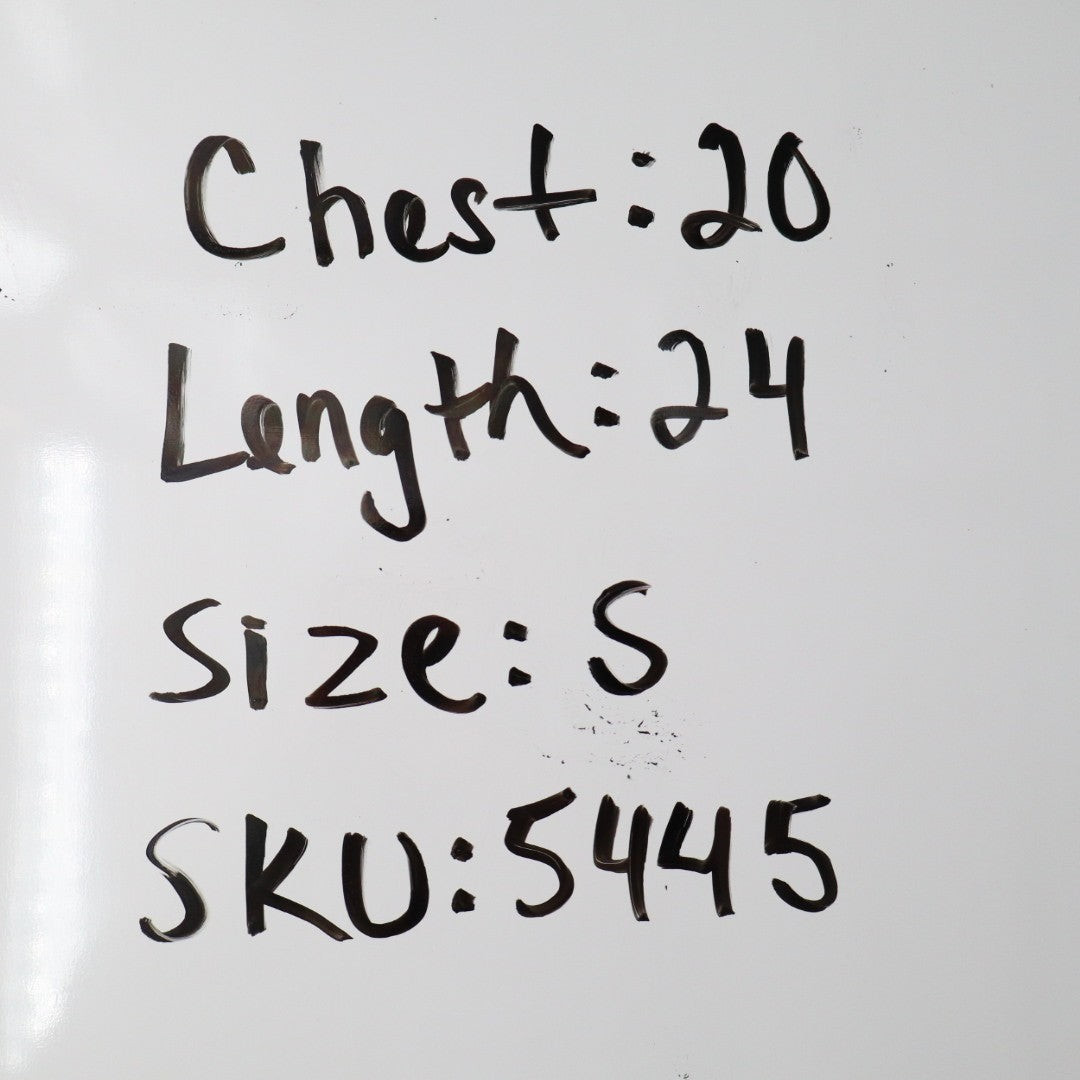 Chest:20
Length:24
Size:S
SKU:5445